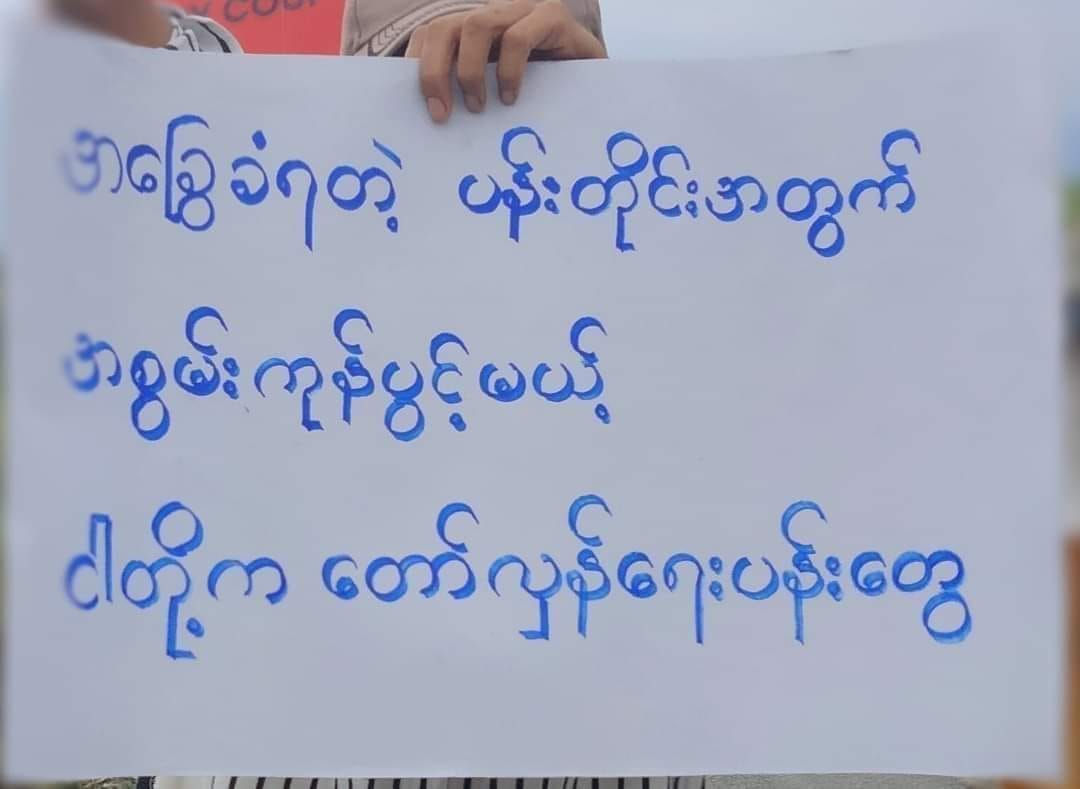 Y COUP
အခြွေခံရတဲ့ ပန်းတိုင်းအတွက်
အစွမ်းကုန်ပွင့်မယ့်
ငါတို့က တော်လှန်ရေးပန်းတွေ